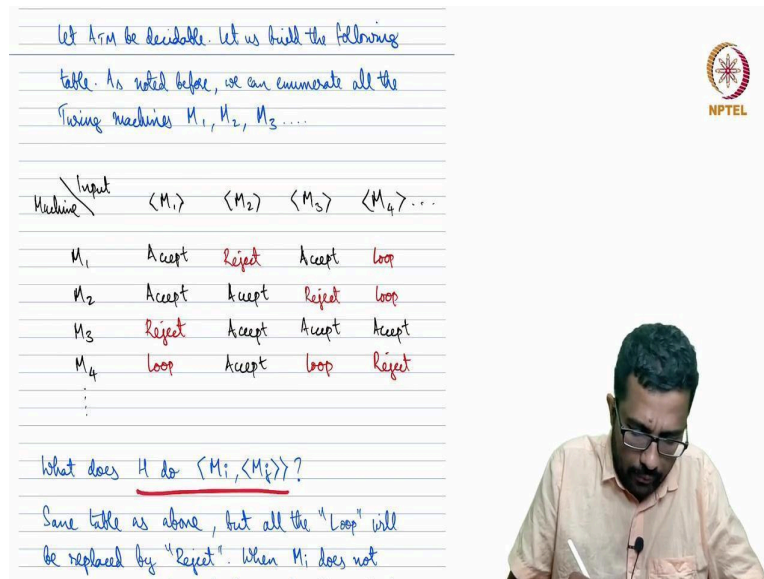 Let ATM be decidable. Let us build the following
table. As noted before, we can enumerate all the
Turing machines M1, M2, M3 ....
NPTEL
Machine \ Input ⟨M1⟩ ⟨M2⟩ ⟨M3⟩ ⟨M4⟩ ...
M1 Accept Reject Accept Loop
M2 Accept Accept Reject Loop
M3 Reject Accept Accept Accept
M4 Loop Accept Loop Reject
What does H do ⟨Mi, ⟨Mj⟩⟩ ?
Same table as above, but all the "Loop" will
be replaced by "Reject". When Mi does not